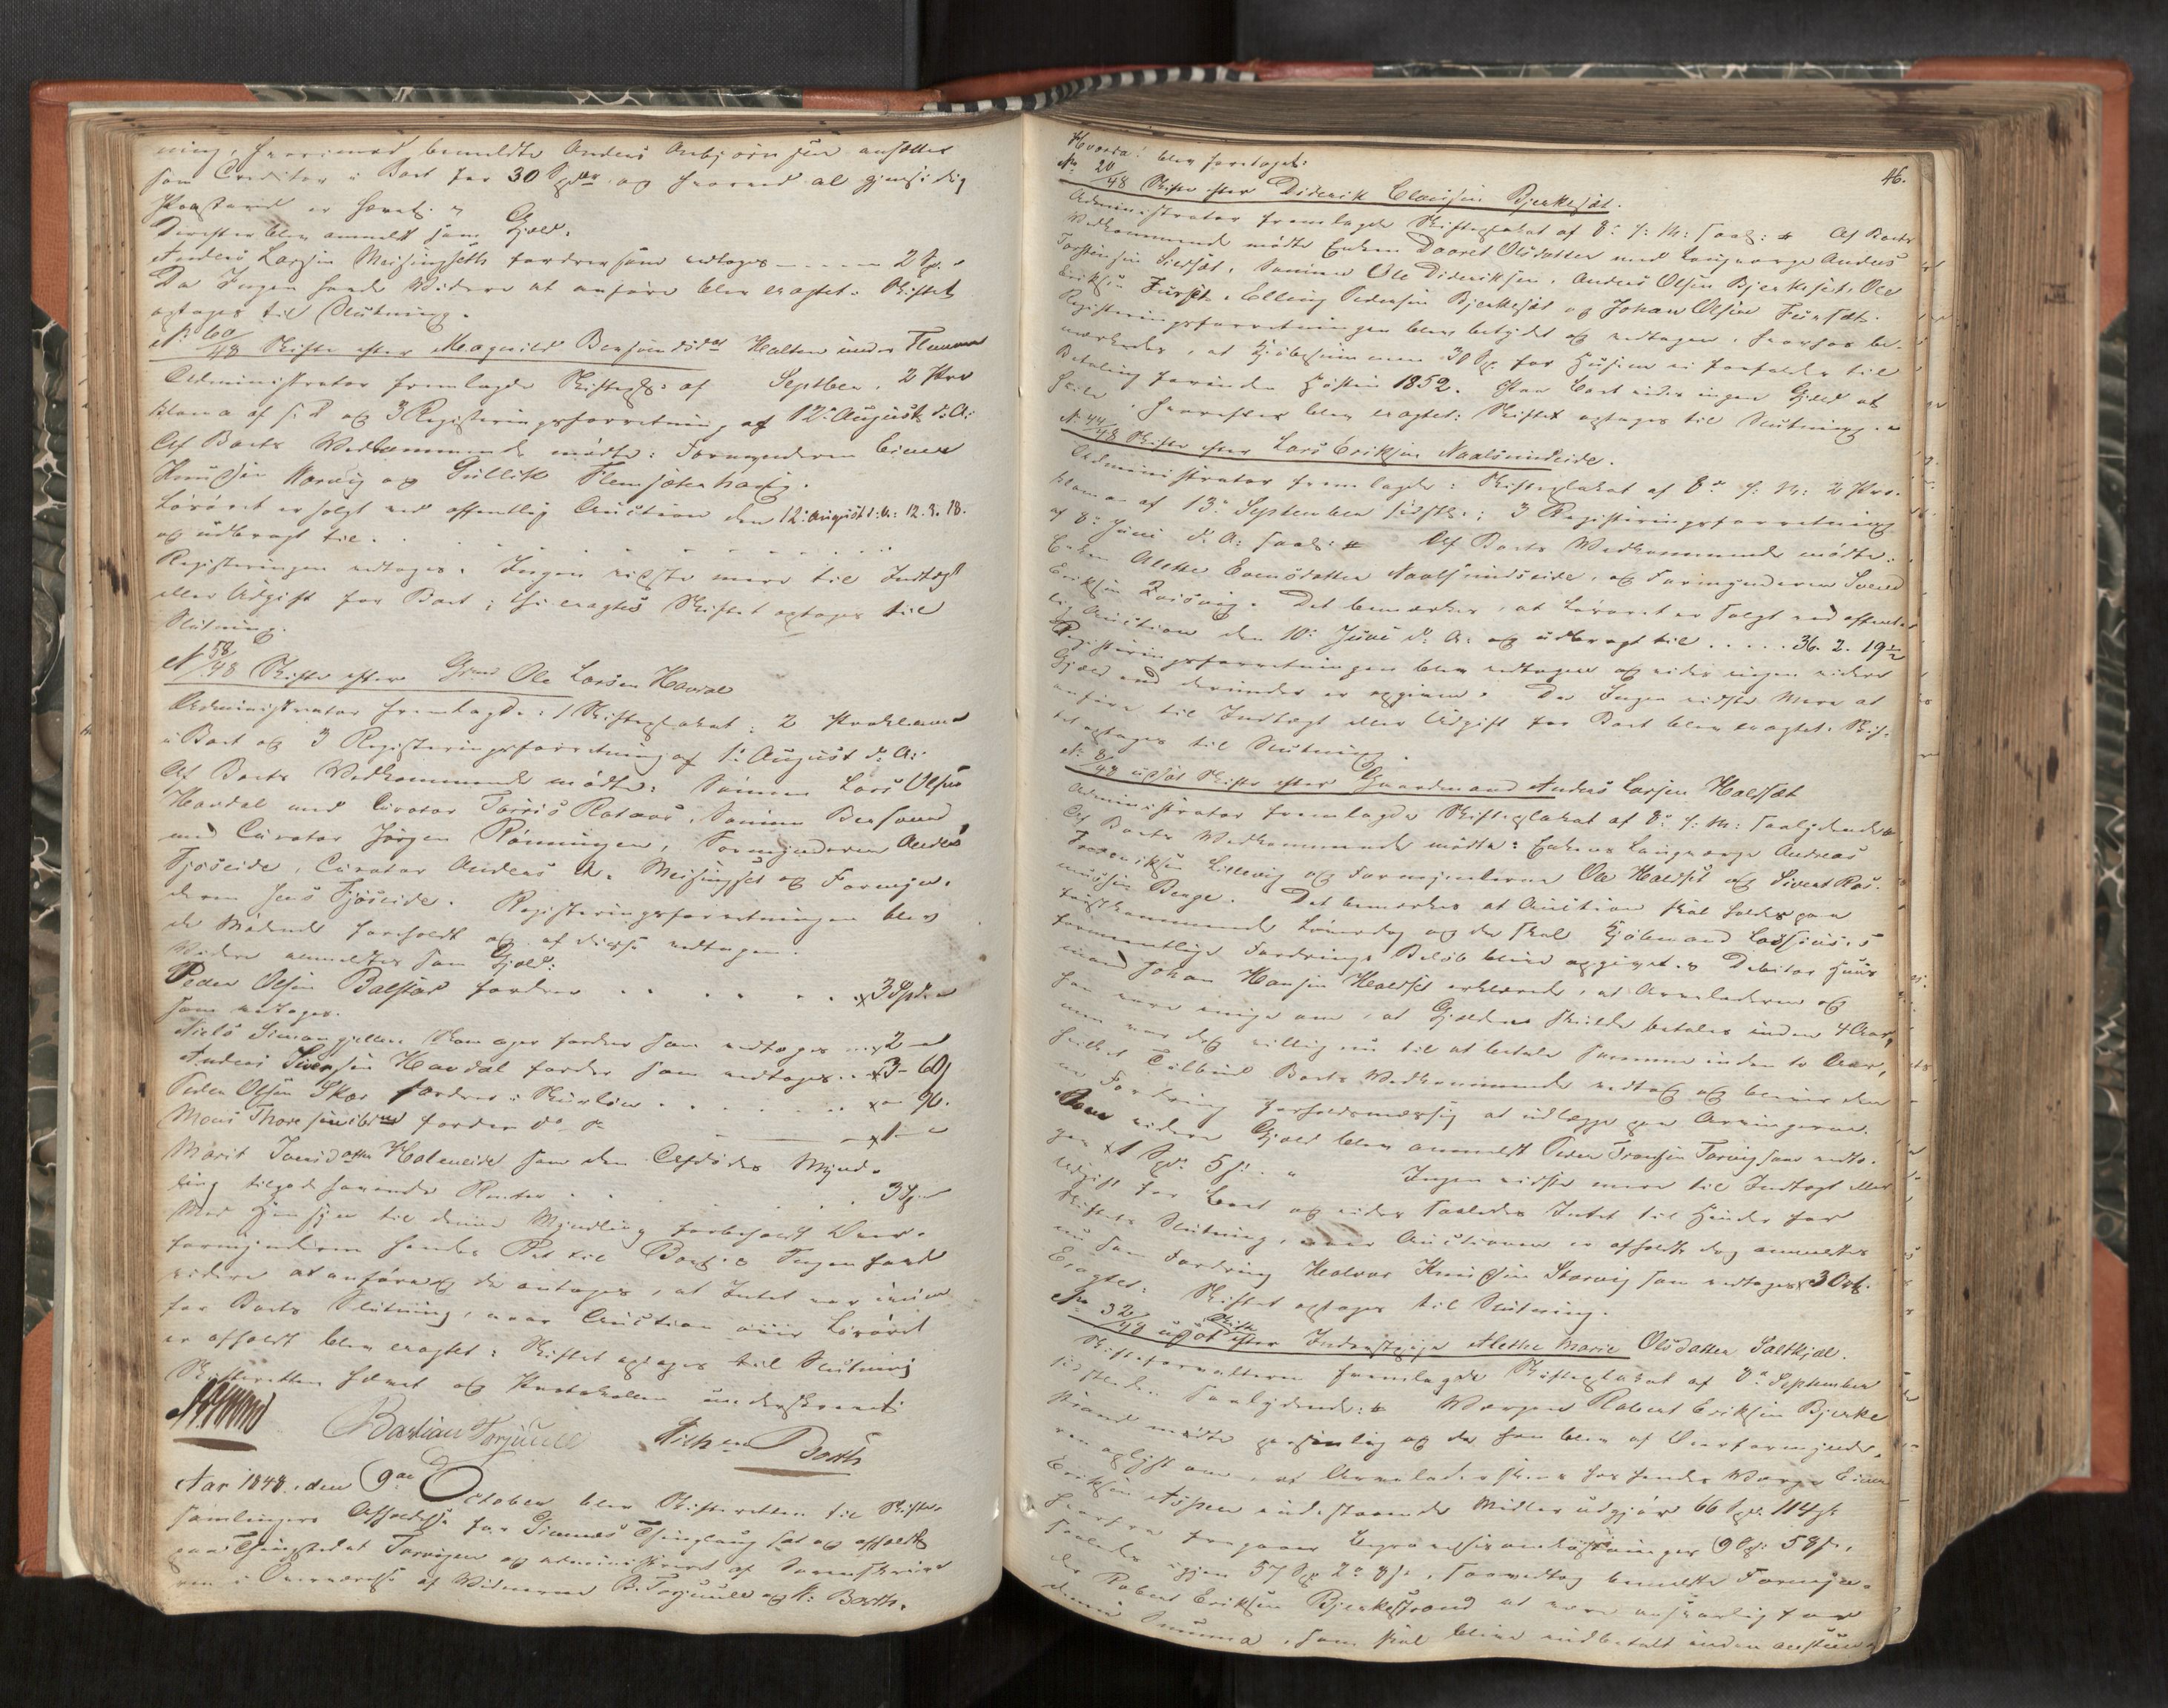 ning, hvorimod bemeldte Anders Anbjørnsen ansættes
som Creditor i Boet for 30 Spdlr og hermed al gjensidig
Paastand er hævet.
Derefter blev anmeldt som Gjæld.
Anders Larsen Meisingseth fordrer som vedtoges 2 Sp.
Da Ingen havde Videre at anføre blev eragtet: Skiftet
optages til Slutning.
N: 60/48 Skifte efter Magnild Bersvendsdat Halten under Flemma
Administrator fremlagde Skifteplk: af Septber, 2 Pro
klama af s. D og 3 Registeringsforretning af 12: August d: A:
Af Boets Vedkommende mødte: Formynderen Einer
Knudsen Norvig og Gullik Flemsæterhaug.
Løsøret er solgt ved offentlig Auction den 12: august d: A: 12. 3. 18.
og udbragt til . . . . .
Registeringen vedtoges. Ingen vidste mere til Indtægt
eller Udgift for Boet; thi eragtes Skiftet optages til
Slutning.
N 58/48 Skifte efter Gmd Ole Larsen Havdal
Administrator fremlagde: 1 Skifteplakat: 2 Proklama
i Boet og 3 Registeringsforretning af 1: August d: A:
Af Boets Vedkommende mødte: Sønnen Lars Olsen
Havdal med Curator Torris Rotaas, Sønnen Bersvend
med Curator Jørgen Rønningen, Formynderen Anders
Fjøseide, Curator Anders A. Meisingset og Formyn-
deren Jens Fjøseide. Registeringsforretningen blev
de Mødende foreholdt og af disse vedtagen.
Videre anmeldtes som Gjæld:
Peder Olsen Balstad fordrer . . . . . x 3 Spd.
som vedtoges.
Niels fordrer som vedtoges x 2
Anders Sivertsen Havdal fordrer som vedtoges . . x 3 - 60
Peder Olsen Skar fordrer i . . . . x - 90.
Mons Thoresen ibid fordrer do do x 1 -
Marit Halseneide som den Afdødes Mynd-
ling tilgode havende Renter . . . . 3 Sp.
Med Hensyn til denne Myndling forbeholdt Over-
formynderen hendes Ret til Boet. Ingen havde
videre at anføre og da antoges, at Intet var i veien
for Boets Slutning, naar Auction over Løsøret
er afholdt blev eragtet: Skiftet optages til Slutning
Skifteretten hævet og Protokollen underskrevet
Bastian Torjuul Barth
Aar 1848. den 9de October blev Skifteretten til Skifte-
samlingers Afholdelse for Gimnes Thinglaug sat og afholdt
paa Thingstedet Torvigen og administreret af Sorenskrive
ren i Overværelse af Vidnerne B. Torjuul og N: Barth.
46.
Hvorda: blev foretaget:
No 20/48 Skifte efter Diderik Clausen Bjerkesæt.
Administrator fremlagde Skifteplakat af 8: f: M: saal: # Af Boets
Vedkommende mødte Enken Daaret Olsdatter med Laugværge Anders
Torstensen Sieldsæt, Sønnen Ole Dideriksen, Anders Olsen Bjerkesæt, Ole
Eriksen Fursæt, Elling Pedersen Bjerkesæt og Johan Olsen Fursæt.
Registeringsforretningen blev betydet og vedtagen, hvorhos be-
mærkedes, at Kjøbesummen 30 Sp. for Husene ei forfalder til
Betaling førinden Høsten 1852. Paa Boet vides ingen Gjæld at
hvile, hvorefter blev eragtet: Skiftet optages til Slutning.
N: 44/48 Skifte efter Lars Eriksen Naalsundeide.
Administrator fremlagde: Skifteplakat af 8: f: M: 2 Pro-
klama af 13: September sidstl:; 3 Registeringsforretning
af 8: Juni d: A: saal: # Af Boets Vedkommende mødte:
Enken Alethe Evensdatter Naalsundseide, og Formynderen Svend
Eriksen . Det bemærkes, at Løsøret er solgt ved offent-
lig Auction den 10: Juni d: A: og udbragt til . . . . . 36. 2. 19½
Registeringsforretningen blev vedtagen og vides ingen videre
Gjæld end derunder er opgiven. Da Ingen vidste Mere at
anføre til Indtægt eller Udgift for Boet blev eragtet: Skif-
tet optages til Slutning.
N: 8/48 Skifte efter Gaardmand Anders Larsen Haldsæt
Administrator fremlagde Skifteplakat af 8: f: M: saalydende #
Af Boets Vedkommende mødte: Enkens Laugværge Andreas
Frederiksen Lillevig og Formynderne Ole Haldsæt og Sivert Ras-
mussen Berge. Det bemærkes at Auction skal holdes paa
førstkommende Løverdag og da skal Kjøbmand Lossius's
formentlige Fordrings Beløb blive opgivet. Debitor Huus-
mand Johan Hansen Haldsæt erklærede, at Arveladeren og
han vare enige om, at Gjælden skulde betales inden 4 Aar,
men var dog villig nu til at betale Summen inden to Aar,
hvilket Tilbud Boets Vedkommende vedtog og bliver den-
ne Fordring forholdsmæssig at udlægge paa Arvingerne.
Som videre Gjæld blev anmeldt Peder Torvig som vedto-
ges x 1 Spd: 5 s: " Ingen vidste mere til Indtægt eller
Udgift for Boet og vides saaledes Intet til Hinder for
Skiftets Slutning, naar Auctionen er afholdt dog anmeldtes
nu som Fordring Halvor Knudsen Storvig som vedtoges x 3 Ort.
Eragtet: Skiftet optages til Slutning.
No 32/48 Skifte efter Inderstpige Alethe Marie Olsdatter Saltkjæl.
Skifteforvalteren fremlagde Skifteplakat af 8: September
sidstleden saalydende: # Værgen Robert Eriksen Bjerke
strand mødte personlig og da han blev af Overformynde-
ren oplyst om, at Arveladerskens hos hendes Værge Einer
Eriksen Aspen indestaaende Midler udgjør 66 Sp: 114 s:
herfra fragaaer Begravelsesomkostninger 9 Sp: 58 s,
saaledes igjen 57 Sp 2 8 s, saa vedtog bemeldte Formyn-
der Robert Eriksen Bjerkestrand at være ansvarlig for
denne Summa, som skal blive indbetalt inden